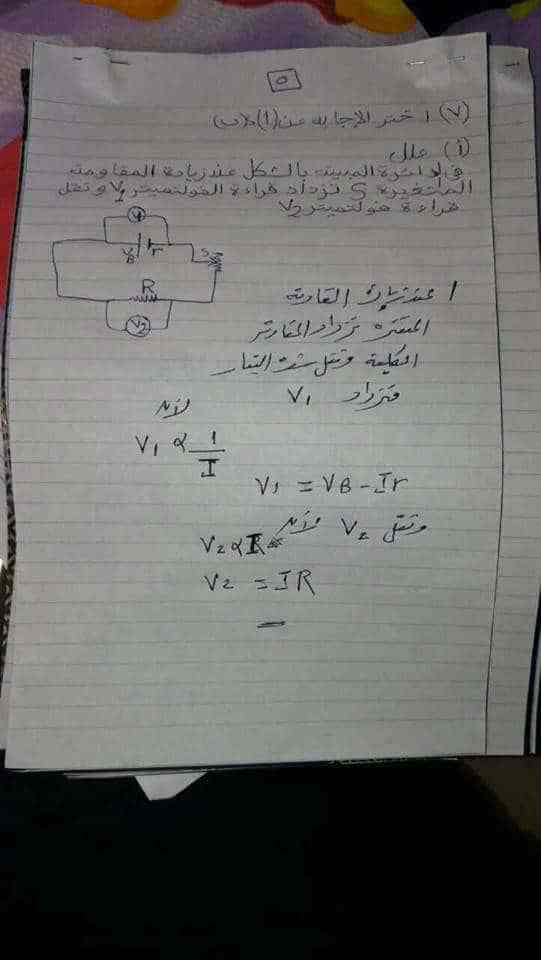 ٥
(٧) اختر الإجابه عن (أ) أو (ب)
(أ) علل
في الدائرة المبينه بالشكل عند زيادة المقاومة
المتغيرة S تزداد قراءة الفولتميتر V1 وتقل
قراءة فولتميتر V2
V1
VB r
S
R
V2
عند زيادة المقاومة
المتغيره تزداد المقاومة
الكلية وتقل شده التيار
فتزداد V1 لأنه
V1 α 1/I
V1 = VB - Ir
وتقل V2 لأنه
V2 α I
V2 = IR